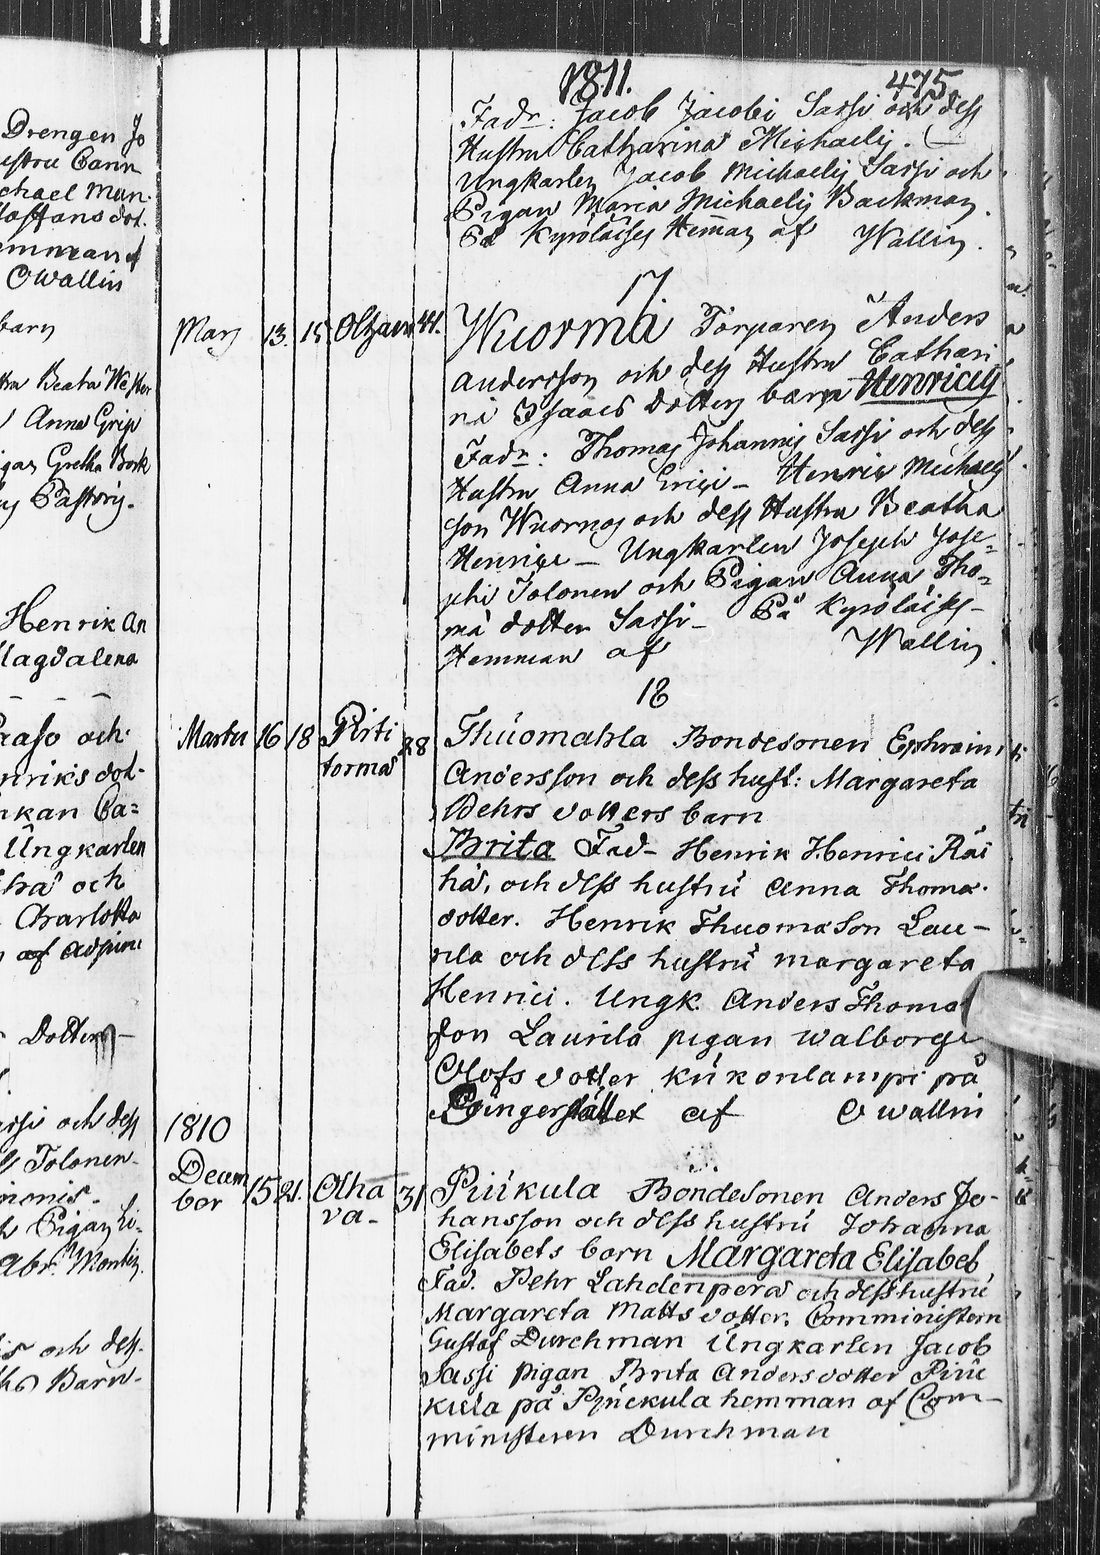 Drengen Jo
ustru Carin
chael Mun
loffans dot.
emman af
O Wallin
barn
tra Beata Wester
Anna Grip
igan Gretha Bork
Pastoris.
Henrik An
Magdalena
raaso och
nriks dot-
nkan Ca=
Ungkarlen
och
Charlotta
af Adjunc
Dotter
assi och dess
Tolonen-
Pigan Li-
Abr. Montin.
och dess-
Barn-
1811. 475
Fadr: Jacob Jacobi Sassi och dess
Hustru Catharina Michaelis.
Ungkarlen Jacob Michaelis Sassi och
Pigan Maria Michaelis Backman.
På Kyröläises Hem̅an af Wallin.
17
Mars 13. 15 Olhava 44. Wuorma Torparen Anders
Andersson och dess Hustru Cathari
na Isaacs Dotters barn Henricus
Fadr: Thomas Johannis Sassi och dess
Hustru Anna Erici - Henric Michaels
son Wuornos och dess Hustru Beatha
Henrici - Ungkarlen Joseph Jose=
phi Tolonen och Pigan Anna Tho=
mä dotter Sassi - På Kyröläises-
Hemman af Wallin.
18
Martii 16 18 Pirti 28 Thuomahla Bondesonen Ephraim
torma Andersson och dess hust: Margareta
Pehrs dotters barn
Brita Fad- Henrik Henrici Räi
hä, och dess hustru Anna Thoma.
dotter. Henrik Thuomason Lau-
rila och dess hustru margareta
Henrici. Ungk. Anders Thoma
son Laurila pigan Walborg
Olofs dotter Kukonlampi på
Gingerstället af O wallin
1810
Decem 15 21. Olha 31 Piukula Bondesonen Anders Jo-
ber va- hansson och dess hustru Johanna
Elisabets barn Margareta Elisabet
Fad. Pehr Lahdenperä och dess hustru
Margareta Matts dotter. Comministern
Gustaf Durchman Ungkarlen Jacob
Sassi pigan Brita Anders dotter Piuu
kula på Piuekula hemman af Com-
ministeren Durchman